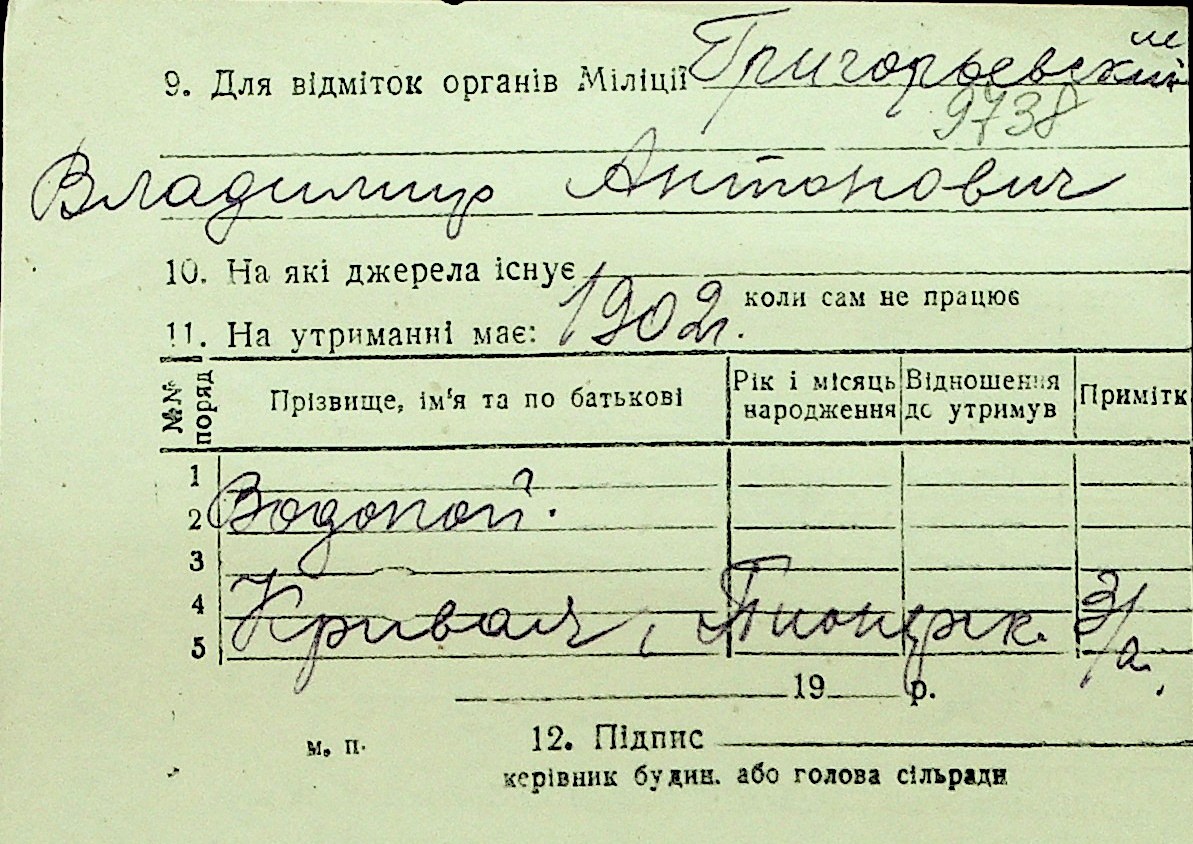 9. Для відміток органів Міліції Григорьевский
9738
Владимир Антонович
10. На які джерела існує
коли сам не працює
11. На утриманні має: 1902 г.
№№ поряд Прізвище, ім'я та по батькові Рік і місяць народження Відношення до утримув Примітк
1
2 Водопой.
3
4
5 Кривая, Пионерск. 3/а.
19 р.
м. п. 12. Підпис
керівник будин. або голова сільради